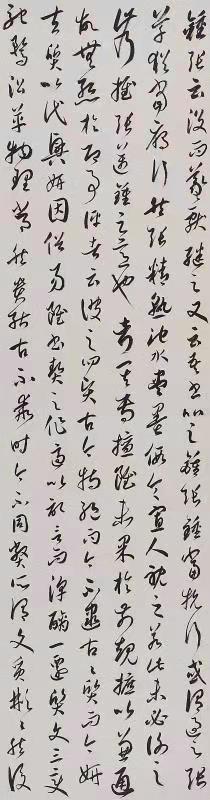 鍾張云沒而羲獻繼之又云吾書比之鍾張鍾當抗行或謂過之張
草猶當雁行然張精熟池水盡墨假令寡人耽之若此未必謝之
此乃推張邁鍾之意也考其專擅雖未果於前規摭以兼通
故無慚於即事評者云彼之四賢古今特絕而今不逮古〻質而今妍
夫質以代興妍因俗易雖書契之作適以記言而淳醨一遷質文三變
馳騖沿革物理常然貴能古不乖時今不同弊所謂文質彬〻然後